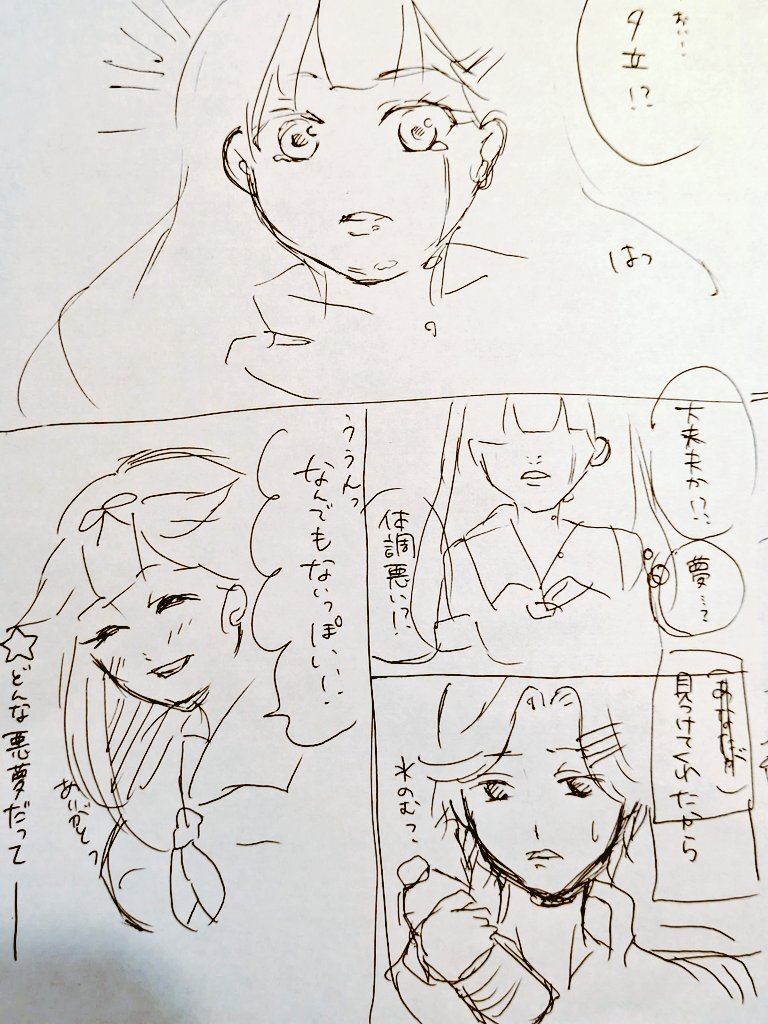 おい…
夕立!?
はっ
大夫夫か!?
夢…?
体調悪い!?
見つけてくれたから
水のむ?
ううんっ
なんでもないっぽい!
ありがとっ
☆どんな悪夢だって―